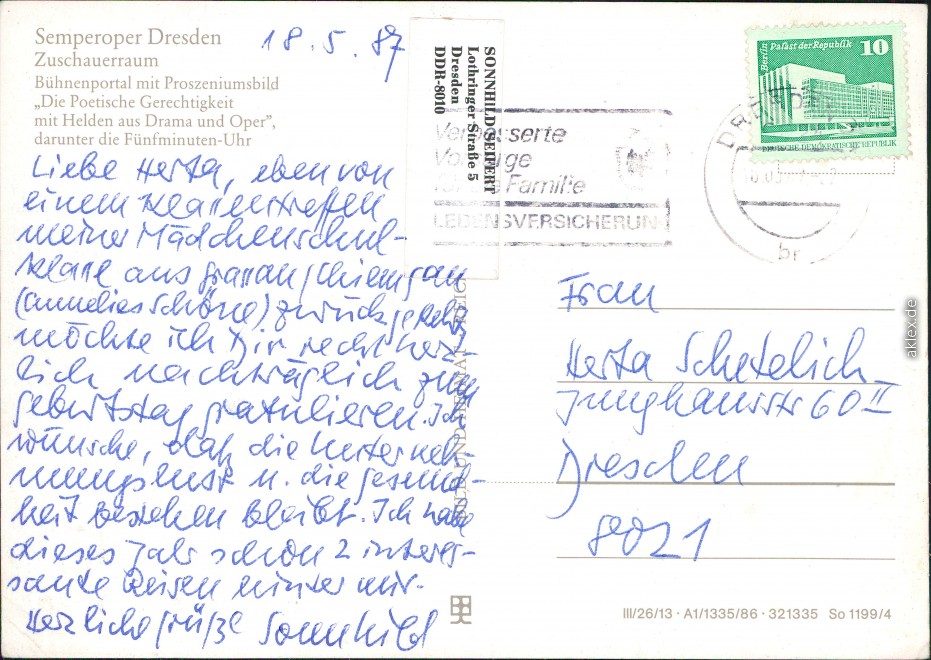 Semperoper Dresden
Zuschauerraum
Bühnenportal mit Proszeniumsbild
„Die Poetische Gerechtigkeit
mit Helden aus Drama und Oper",
darunter die Fünfminuten-Uhr
18.5.87
Liebe Herta, eben von
einem Klassentreffen
meiner Mädchenschul-
klasse aus Grassau/Chiemgau
(Annelies Schöne) zurückgekehrt
möchte ich Dir recht herz-
lich nachträglich zum
Geburtstag gratulieren. Ich
wünsche, daß die Unterneh-
mungslust u. die Gesund-
heit bestehen bleibt. Ich habe
dieses Jahr schon 2 interes-
sante Reisen hinter mir.
Herzliche Grüße Sonnhild
SONNHILD SEIFERT
Lothringer Straße 5
Dresden
DDR-8010
Verbesserte
Familie
LEBENSVERSICHERUNG
Berlin Palast der Republik 10
DEUTSCHE DEMOKRATISCHE REPUBLIK
DRESDEN
br
Frau
Herta Schetelich
Junghansstr 60 II
Dresden
8021
BILD UND HEIMAT REICHENBACH
III/26/13 · A1/1335/86 · 321335 So 1199/4
aklex.de